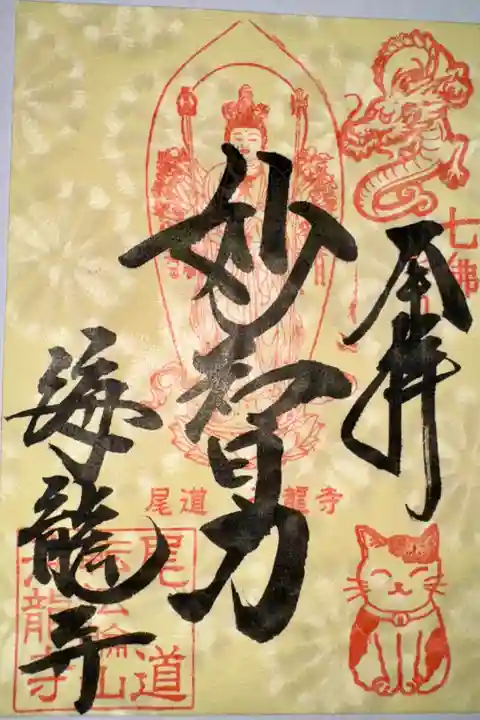 奉拝
七佛
妙智力
尾道 龍寺
海龍寺
尾道
転法輪山
海龍寺